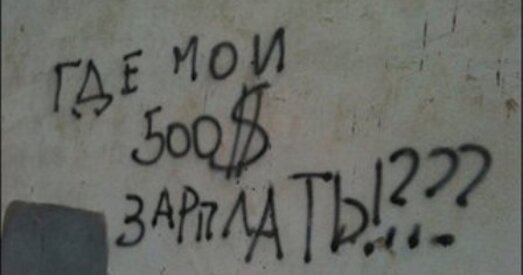 ГДЕ МОИ
500$
ЗАРПЛАТЫ!???